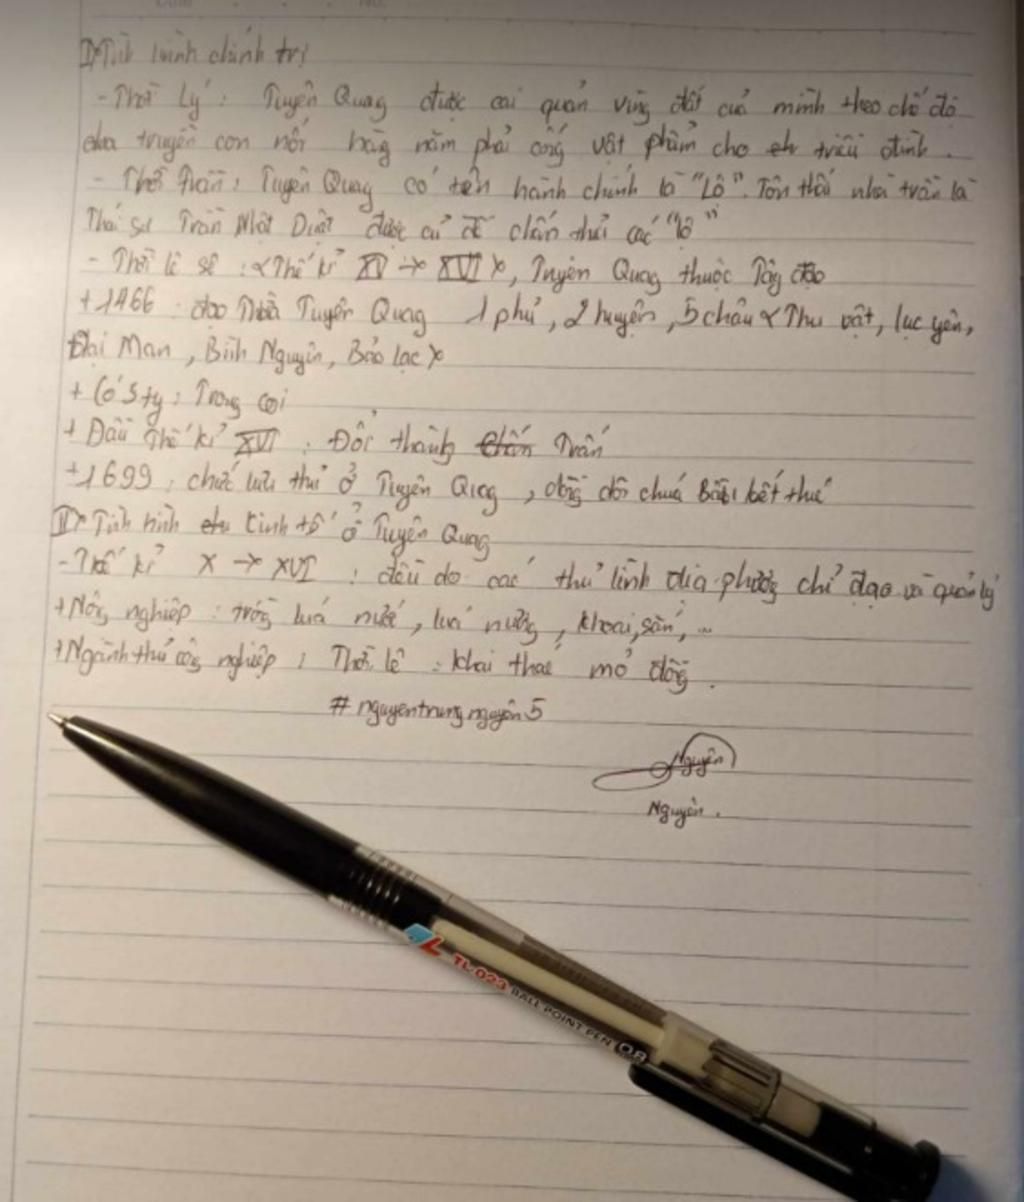 I Tình hình chính trị
- Thời Lý : Tuyên Quag được cai quản vùng đất của mình theo chế độ
cha truyền con nối hằng năm phải cống vật phẩm cho triều đình.
- Thời Trần : Tuyên Quag có tên hành chính là "Lộ". Tôn thất nhà trần là
Thái sư Trần Nhật Duật được cử để chấn thủ các "lộ"
- Thời lê sơ : Thế kỉ XV → XVI, Tuyên Quag thuộc Tây đạo
+ 1466 : đạo Tuyên Quag 1 phủ, 2 huyện, 5 châu Thu vật, lục yên,
Đại Man, Bình Nguyên, Bảo lạc
+ Có 3 ty : Trong coi
+ Đầu Thế kỉ XVI : Đổi thành Trấn
+ 1699 : chức lưu thủ ở Tuyên Quag, dòng dõi chúa Bầu kết thúc
II Tình hình kinh tế ở Tuyên Quag
- Thế kỉ X → XVI : đều do các thủ lĩnh địa phương chỉ đạo và quản lý
+ Nông nghiệp : trồng lúa nước, lúa nương, khoai, sắn, ...
+ Ngành thủ công nghiệp : Thời lê : khai thác mỏ đồng.
# nguyentrungnguyên5
Nguyên
Nguyên.
TL-023 BALL POINT PEN 0.8